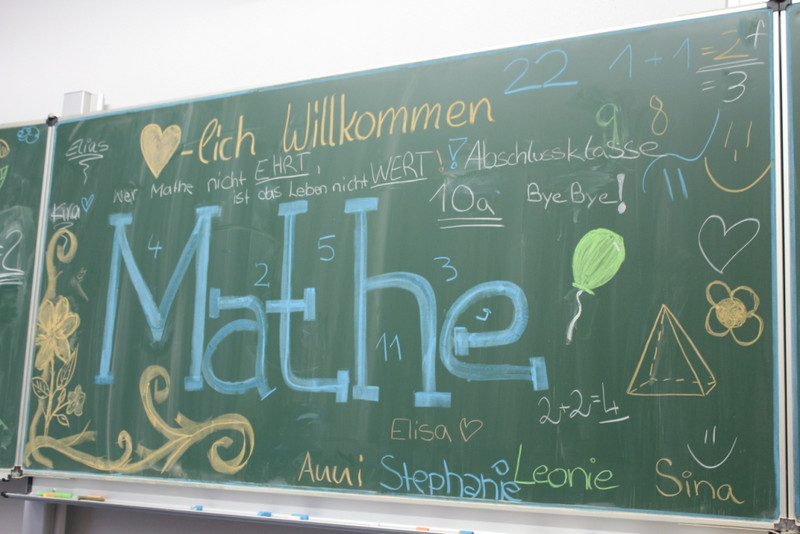 22 1+1=2f
=3
♡-lich Willkommen
9 8
Elias
Wer Mathe nicht EHRT,
ist das Leben nicht WERT!
! Abschlussklasse
10a ByeBye!
Kira ♡
Mathe
4 2 5 3 11
2
2+2=4
Elisa ♡
Anni Stephanie Leonie Sina